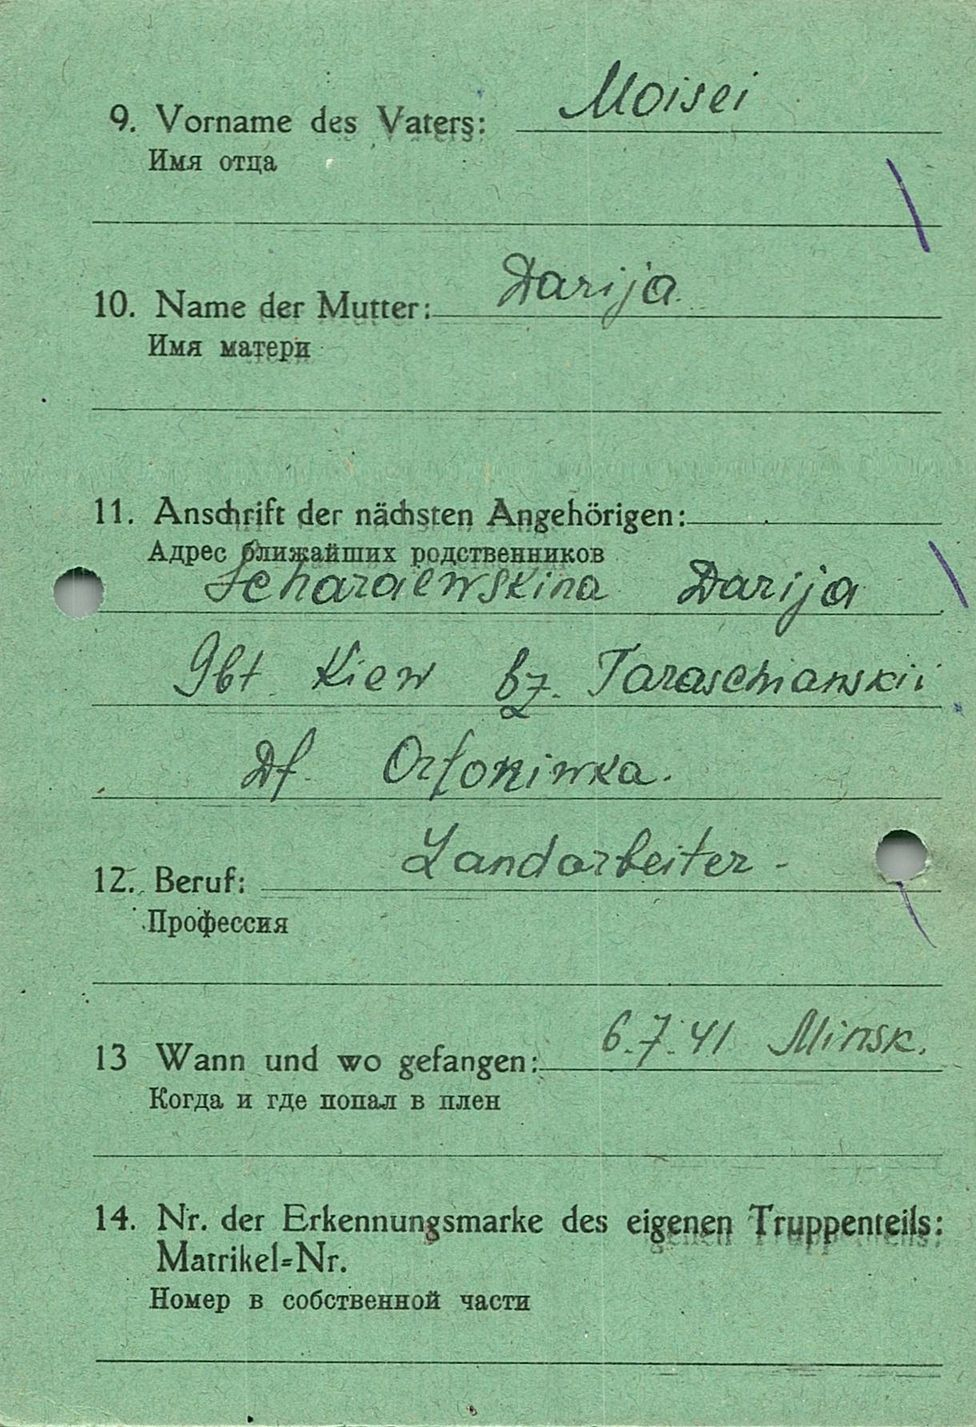 9. Vorname des Vaters: Moisei
Имя отца
10. Name der Mutter: Darija
Имя матери
11. Anschrift der nächsten Angehörigen:
Адрес ближайших родственников
Darija
Gbt. Kiew bz. Taraschianskii
Df. Orfoniwka.
12. Beruf: Landarbeiter -
Профессия
13 Wann und wo gefangen: 6.7.41 Minsk.
Когда и где попал в плен
14. Nr. der Erkennungsmarke des eigenen Truppenteils:
Matrikel=Nr.
Номер в собственной части